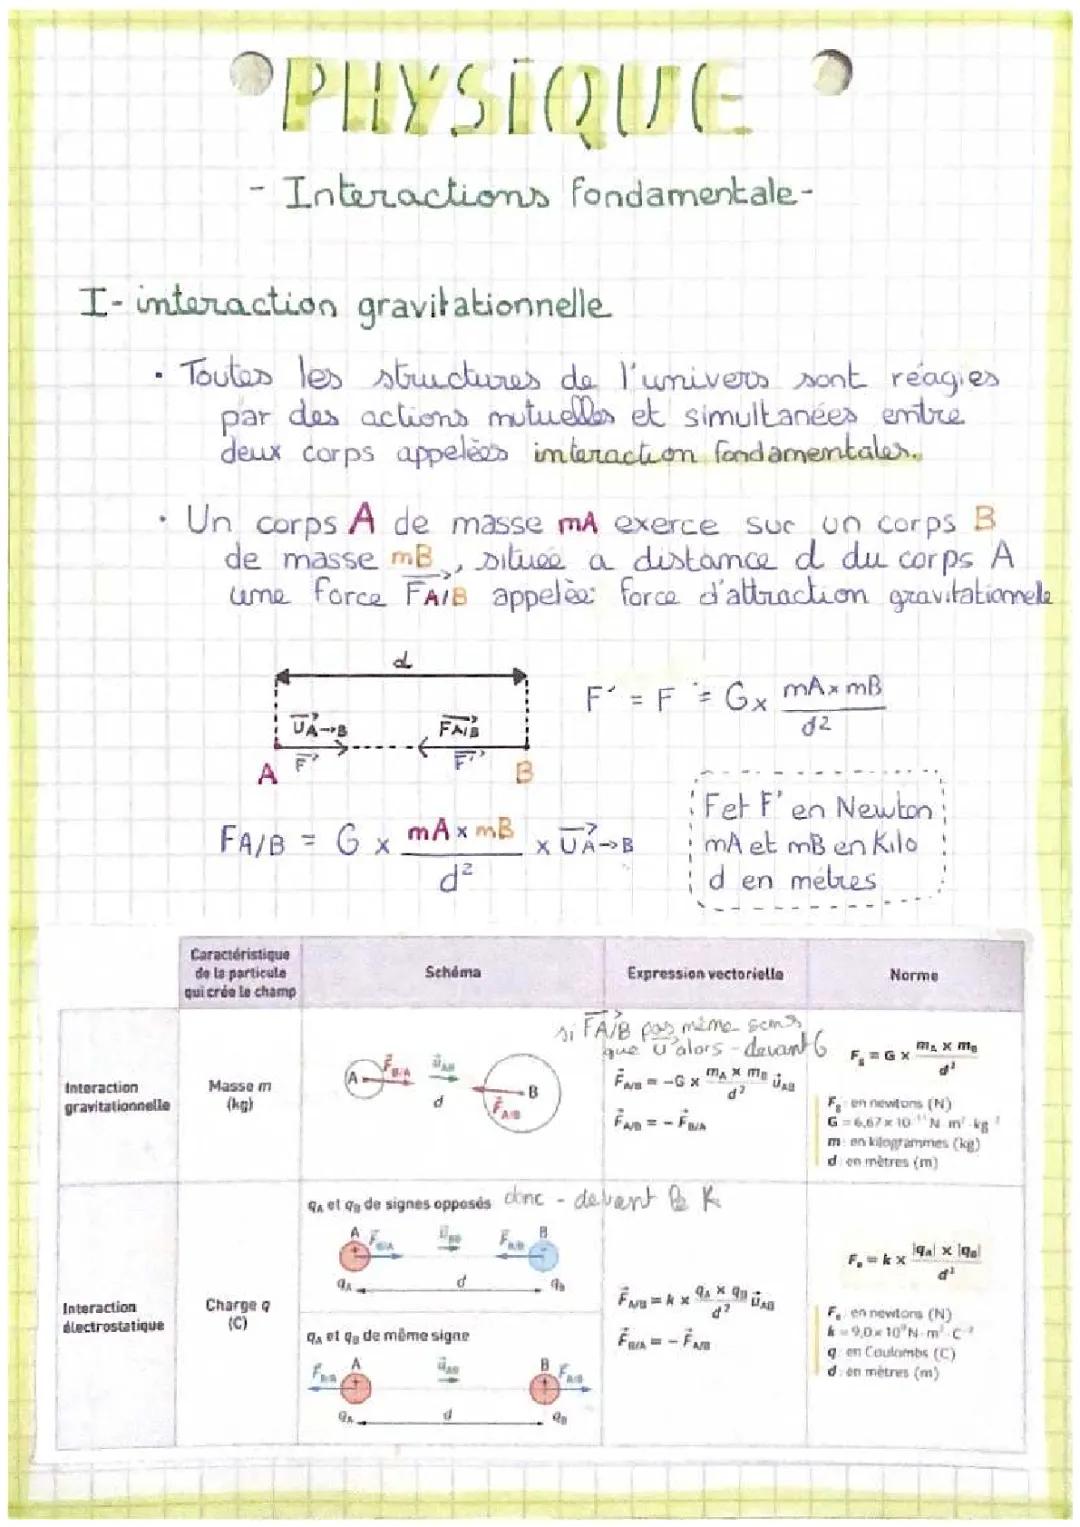 PHYSIQUE
- Interactions fondamentale -
I- interaction gravitationnelle
• Toutes les structures de l'univers sont réagies
par des actions mutuelles et simultanées entre
deux corps appelées interaction fondamentales.
• Un corps A de masse mA exerce sur un corps B
de masse mB, située a distance d du corps A
une force FA/B appelée: force d'attraction gravitationnele
d
UA→B
FA/B
F
F'
A
B
F' = F = G x mA x mB
d2
FA/B = G x mA x mB x UA→B
d²
F et F' en Newton
mA et mB en Kilo
d en mètres
Caractéristique
de la particule
qui crée le champ
Schéma
Expression vectorielle
Norme
Interaction
gravitationnelle
Masse m
(kg)
A
FB/A
uAB
d
FA/B
B
si FA/B pas même sens
que u alors - devant G
FA/B = -G x mA x mB uAB
d²
FA/B = - FB/A
Fg = G x mA x mB
d²
Fg en newtons (N)
G = 6,67 x 10⁻¹¹ N·m²·kg⁻²
m : en kilogrammes (kg)
d : en mètres (m)
Interaction
électrostatique
Charge q
(C)
qA et qB de signes opposés donc - devant le K
A
FB/A
FA/B
B
qA
d
qB
qA et qB de même signe
FB/A
A
uAB
B
FA/B
qA
d
qB
FA/B = k x qA x qB uAB
d²
FB/A = - FA/B
Fe = k x |qA| x |qB|
d²
Fe : en newtons (N)
k = 9,0 x 10⁹ N·m²·C⁻²
q : en Coulombs (C)
d : en mètres (m)